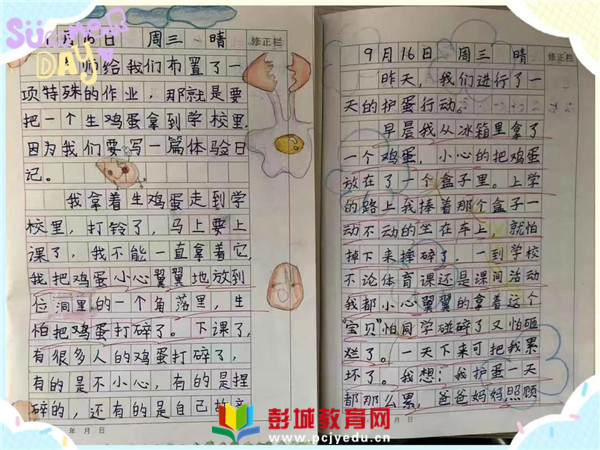 Summer
DAY
月16日 周三 晴 修正栏
师给我们布置了一
项特殊的作业,那就是要
把一个生鸡蛋拿到学校里,
因为我们要写一篇体验日
记。
我拿着生鸡蛋走到学
校里,打铃了,马上要上
课了,我不能一直拿着它
我把鸡蛋小心翼翼地放到
位洞里的一个角落里,生
怕把鸡蛋打碎了。下课了,
有很多人的鸡蛋打碎了,
有的是不小心,有的是捏
碎的,还有的是自己
年 月 日
9月16日 周三 晴 修正栏
昨天,我们进行了一
天的护蛋行动。
早晨我从冰箱里拿了
一个鸡蛋,小心的把鸡蛋
放在了一个盒子里。上学
的路上我捧着那个盒子一
动不动的坐在车上,就怕
掉下来摔碎了。一到学校
不论体育课还是课间活动
我都小心翼翼的拿着这个
“宝贝”怕同学碰碎了又怕砸
烂了。一天下来可把我累
坏了。我想:我护蛋一天
都那么累,爸爸妈妈照顾
月 日
彭城教育网
www.pcjyedu.cn